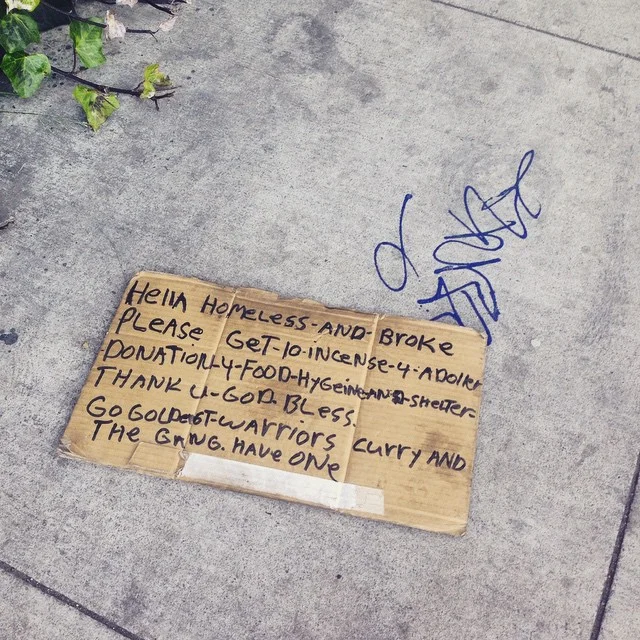 Hella HOMELESS-AND BROKE
PLEASE GET-10-INCENSE-4-A Doller
DONATION-4-FOOD-HYGeine-AND-SHELTER-
THANK U-GOD-BLESS
GO GOLDeST-WARRIORS CURRY AND
THE GANG. HAVE ONe